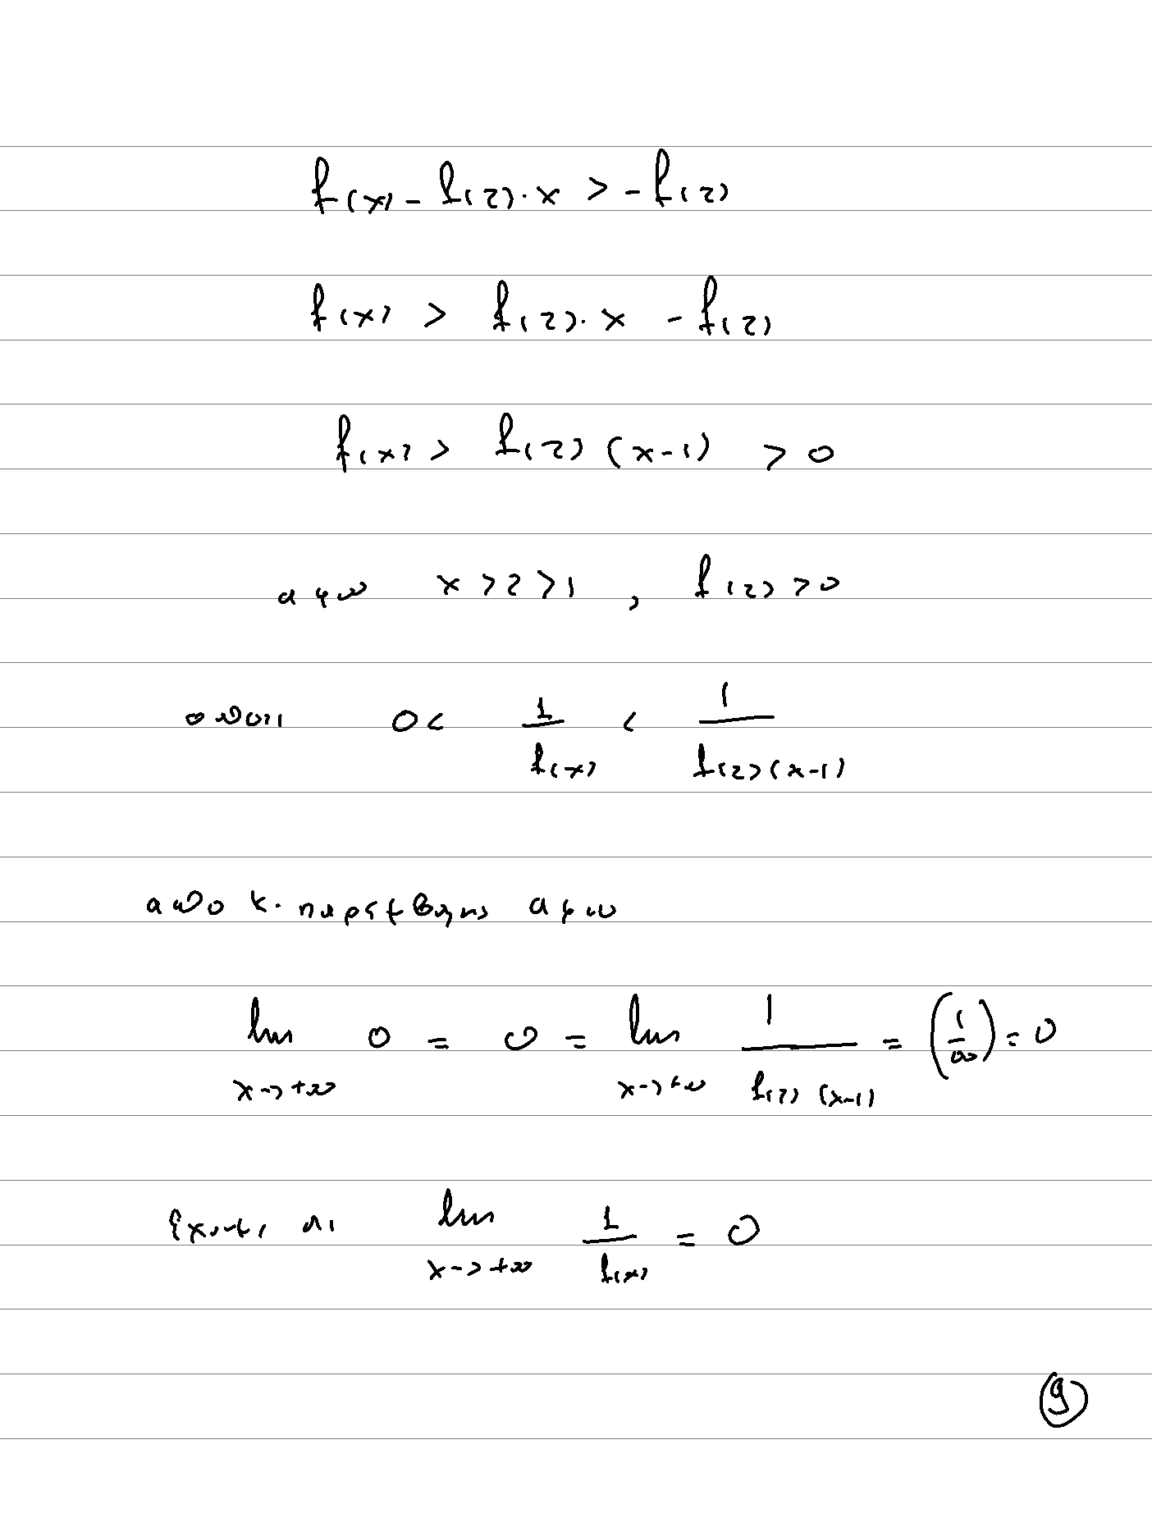 f(x) - f(2)·x > -f(2)
f(x) > f(2)·x - f(2)
f(x) > f(2)(x-1) > 0
αφου x>2>1, f(2)>0
οποτε 0< 1/f(x) < 1/f(2)(x-1)
απο κ. παρεμβολης αφου
lim x→+∞ 0 = 0 = lim x→+∞ 1/f(2)(x-1) = (1/∞) = 0
εχουμε οτι lim x→+∞ 1/f(x) = 0
9